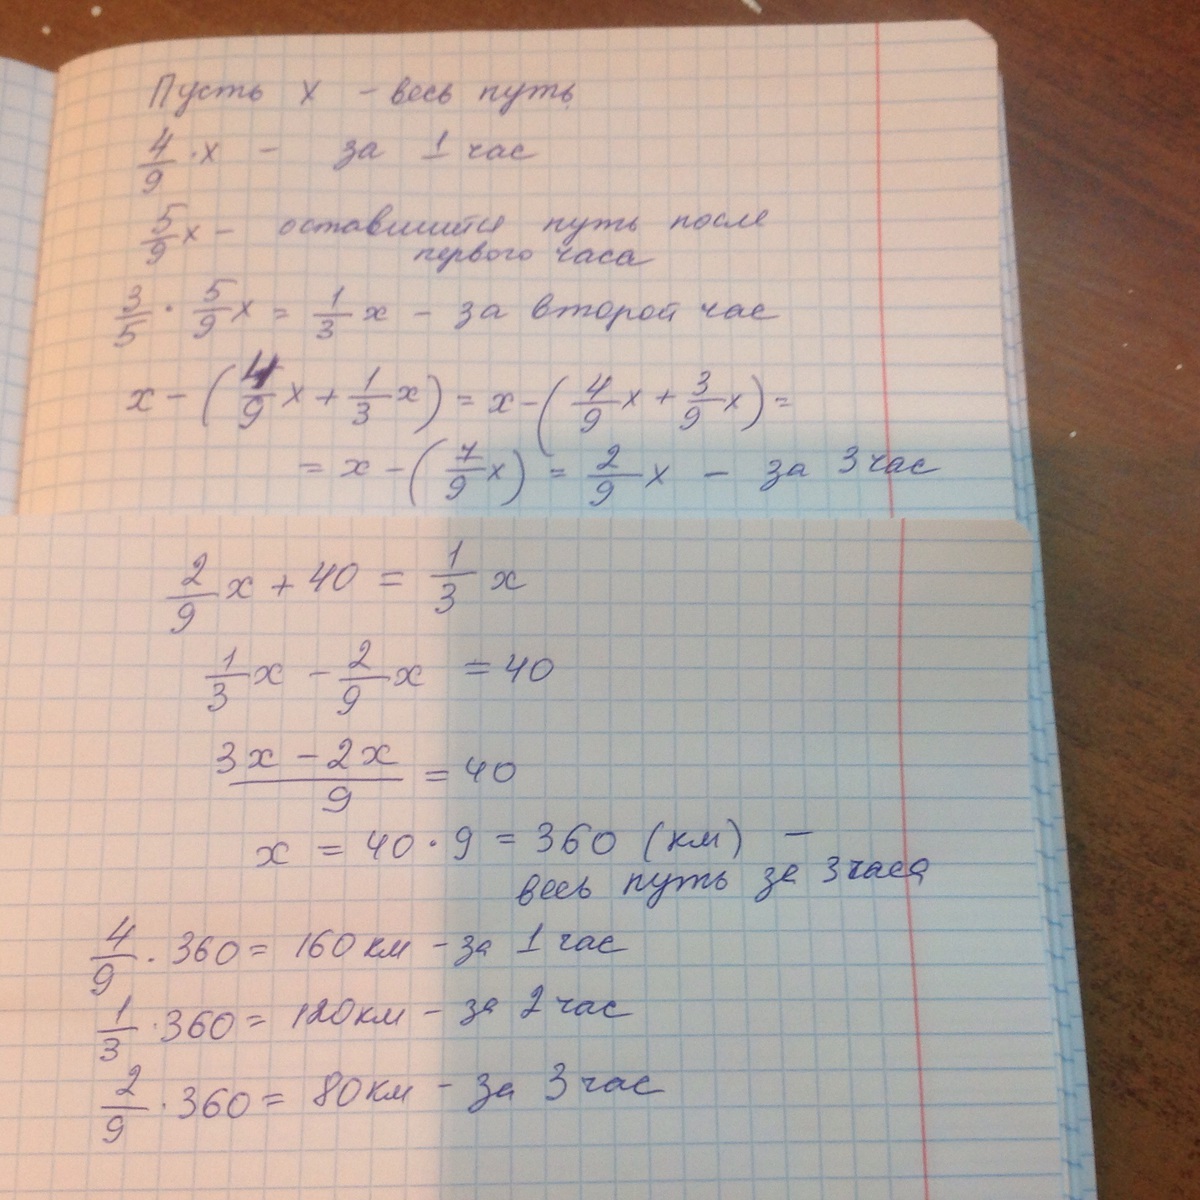 Пусть x - весь путь
4/9 · x - за 1 час
5/9 x - оставшийся путь после
первого часа
3/5 · 5/9 x = 1/3 x - за второй час
x - (4/9 x + 1/3 x) = x - (4/9 x + 3/9 x) =
= x - (7/9 x) = 2/9 x - за 3 час
2/9 x + 40 = 1/3 x
1/3 x - 2/9 x = 40
(3x - 2x)/9 = 40
x = 40 · 9 = 360 (км) -
весь путь за 3 часа
4/9 · 360 = 160 км - за 1 час
1/3 · 360 = 120 км - за 2 час
2/9 · 360 = 80 км - за 3 час